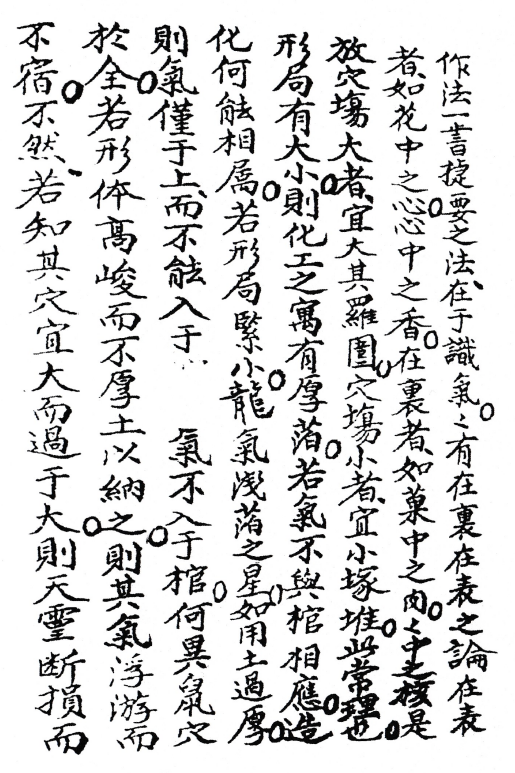 作法一書捷要之法、在于識氣。々有在裏在表之論在表
者、如花中之心。心中之香。在裏者、如菓中之肉。々中之核是
放穴塲大者、宜大其羅圍。穴塲小者、宜小塚堆。此常理也。
形局有大小。則化工之寓有厚薄。若氣不與棺相應。造
化何能相属。若形局緊小。龍氣浅落之星。如用土過厚。
則氣僅于上、而不能入于 氣不入于棺。何異鼠穴
於全。若形体高峻而不厚土以納之。則其氣浮游而
不宿。不然、若知其穴宜大而過于大。則天靈断損而